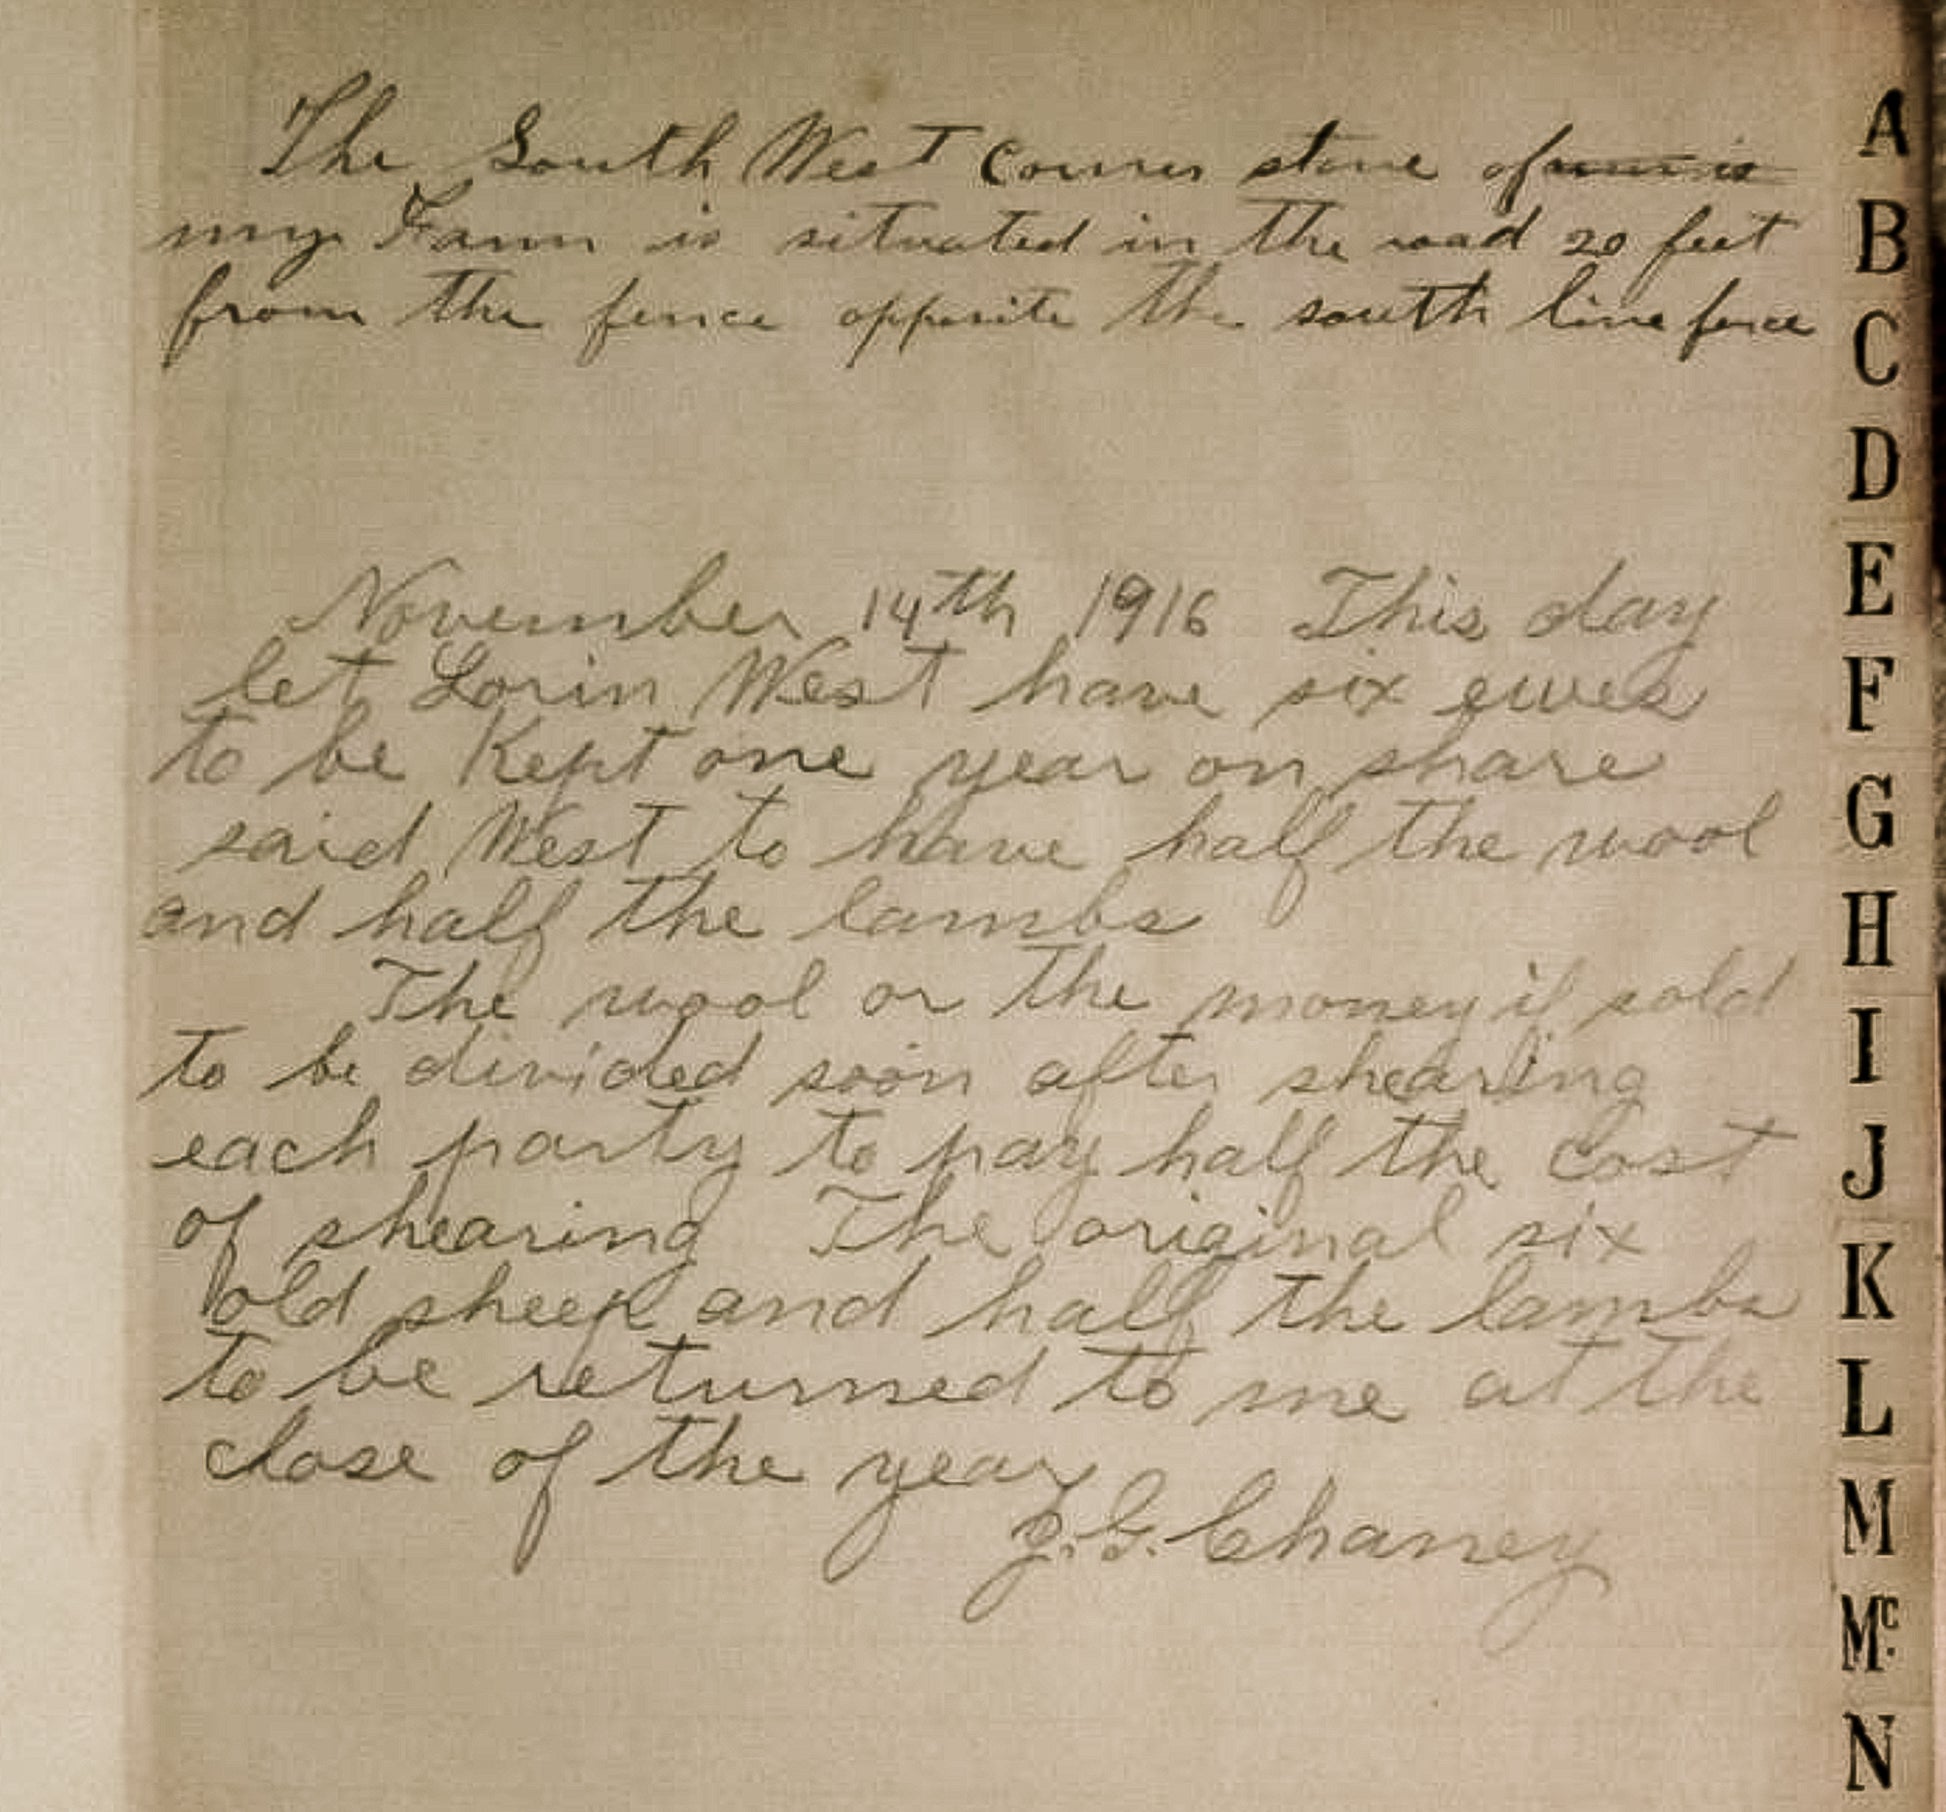 The South West Corner stone of
my Farm is situated in the road 20 feet
from the fence opposite the south line fence
November 14th 1916 This day
let Lorin West have six ewes
to be Kept one year on share
said West to have half the wool
and half the lambs
The wool or the money if sold
to be divided soon after shearling
each party to pay half the Cost
of shearing The original six
old sheep and half the lambs
to be returned to me at the
close of the year
J. G. Chaney
A
B
C
D
E
F
G
H
I
J
K
L
M
Mc.
N